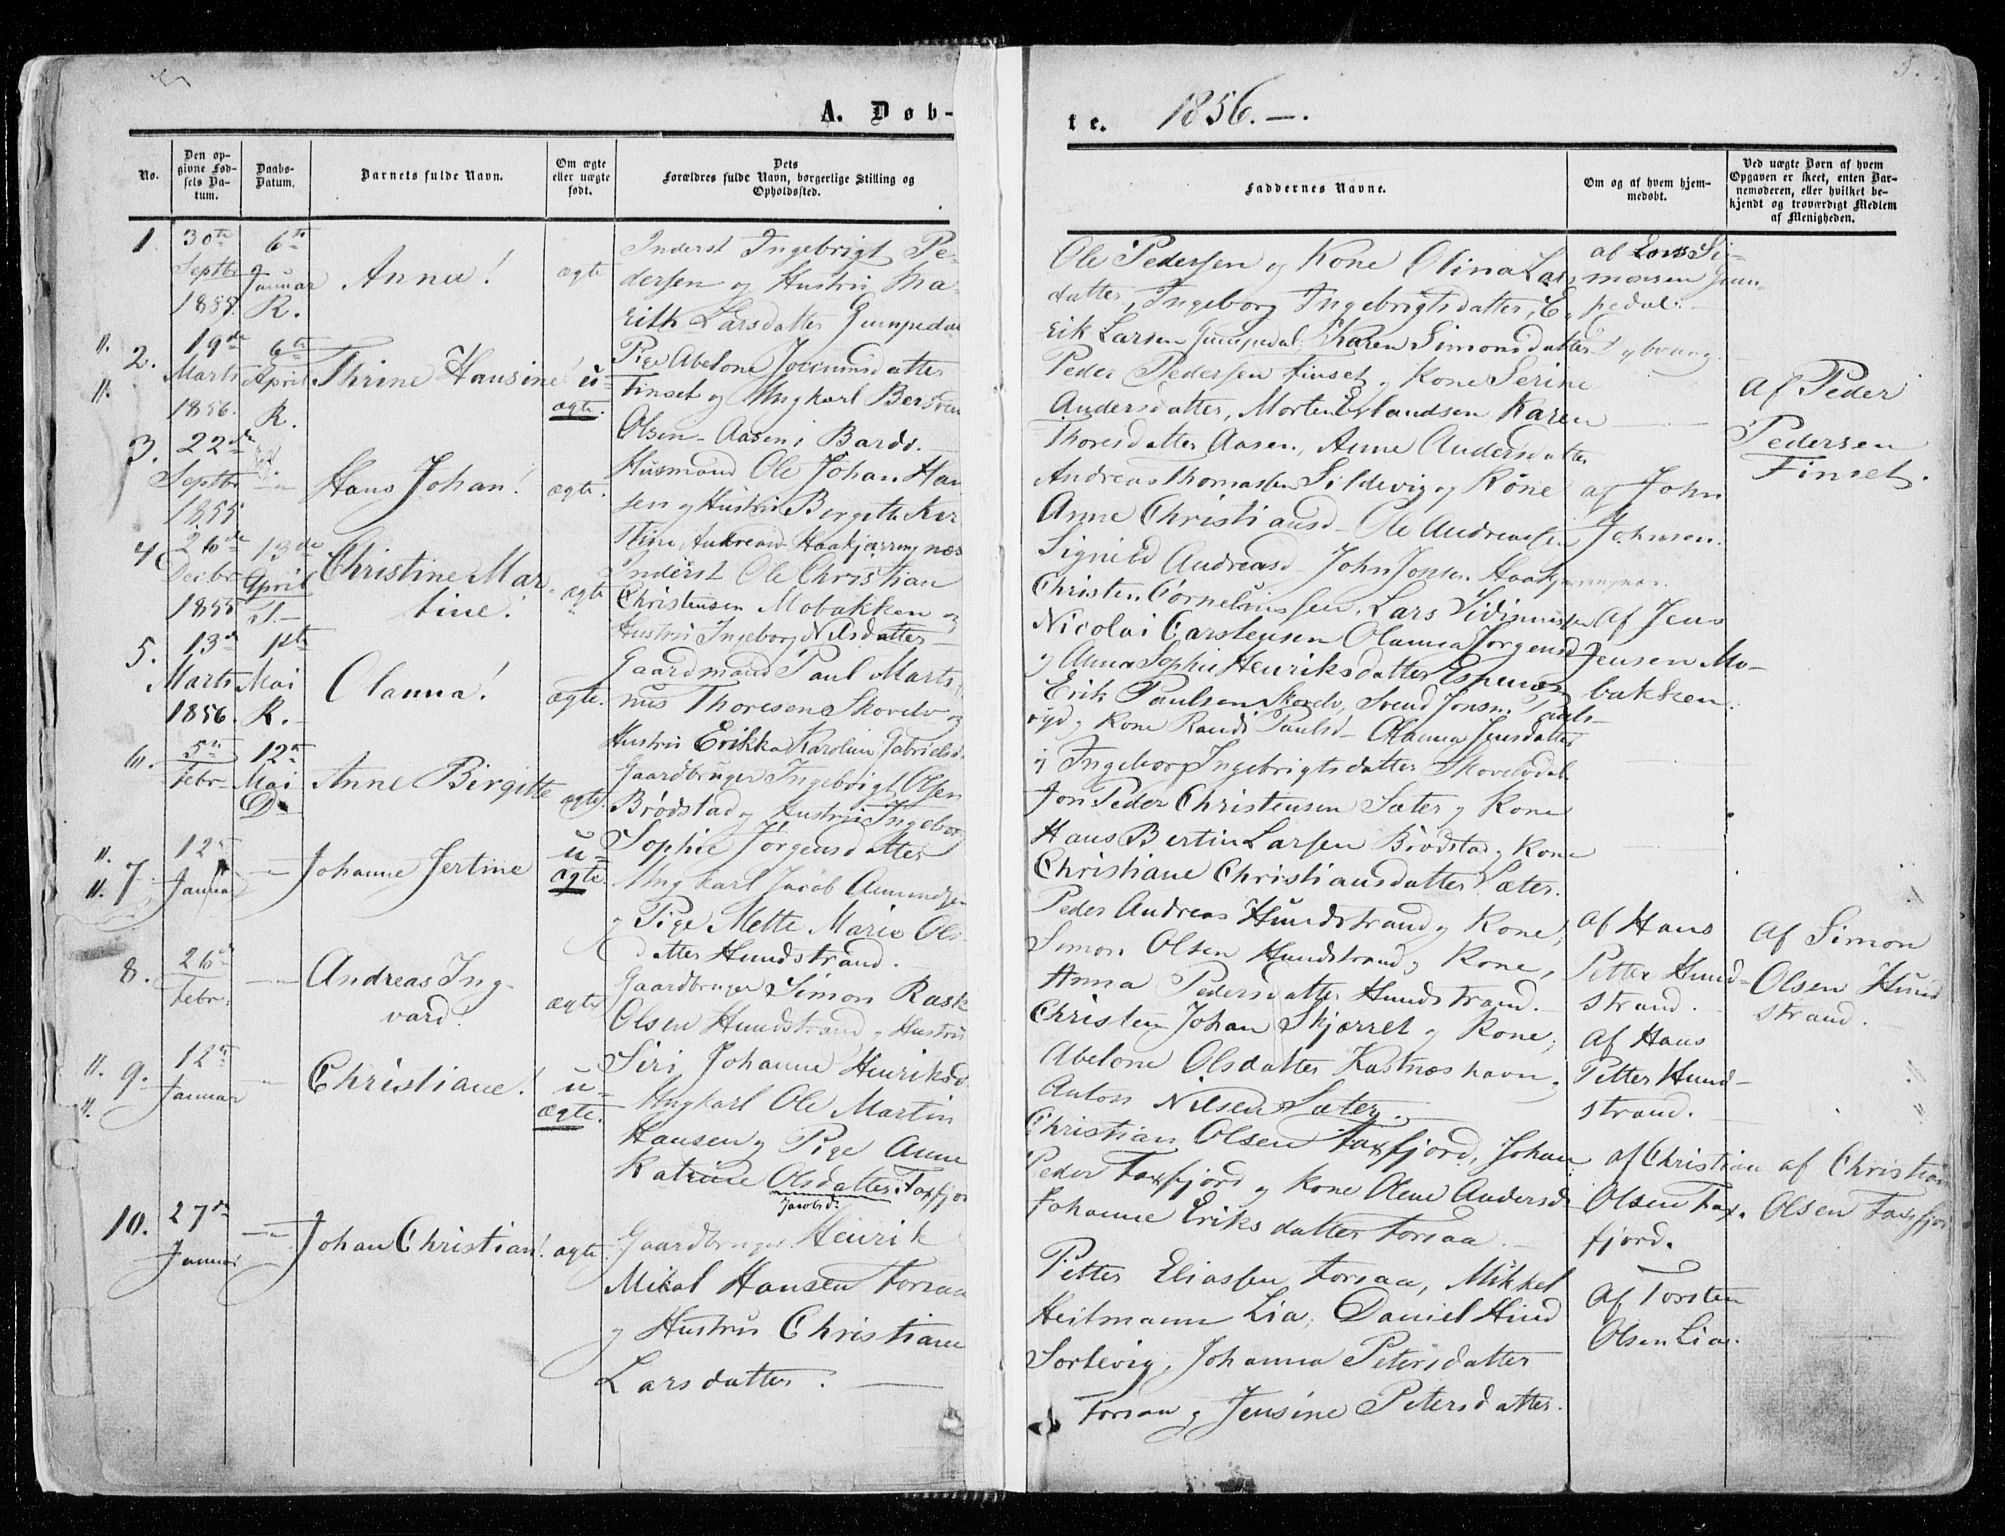 A. Døb-
te. 1856. —.
No.
Den op-
givne Fød-
sels Da-
tum.
Daabs-
Datum.
Barnets fulde Navn.
Om ægte
eller uægte
født.
Dets
Forældres fulde Navn, borgerlige Stilling og
Opholdssted.
Faddernes Navne.
Om og af hvem hjem-
medøbt.
Ved uægte Børn af hvem
Opgaven er skeet, enten Bar-
nemoderen, eller hvilket be-
kjendt og troværdigt Medlem
af Menigheden.
1.
30te
Septbr
1855.
6te
Januar
R.
Anna!
ægte
Inderst Ingebrigt Pe-
dersen og Hustru Ma-
Larsdatter
Ole Pedersen og Kone Olina Lars
datter, Ingeborg Ingebrigtsdatter, E-
rik Larsen Karen Simonsdatter
af Si-
monsen
2.
19de
Marts
1856.
6te
April
R.
Thrine Hansine!
u-
ægte.
Pige Abelone
Finset og Ungkarl
Olsen Aasen i Bardo.
Peder Pedersen Finset og Kone Serine
Andersdatter, Morten Erlandsen Karen
Thoresdatter Aasen, Anne Andersdatter
af Peder
Pedersen
Finset.
3.
22de
Septbr
1855
Hans Johan!
ægte.
Husmand Ole Johan Han
sen og Hustru Bergitte
Andreas Thomassen Sildevig og Kone
Anne Christiansd Ole Andreassen
Signild Andreasd John Jonsen
af John
Johnsen.
4.
26de
Decbr
1855
13de
April
Christine Mar-
tine!
ægte
Inderst Ole Christian
Christensen Mobakken og
Hustru Ingeborg Nilsdatter
Christen Corneliussen, Lars
Nicolai Carstensen Olanna Jørgensd
og Anna Sophie Henriksdatter Espenæs
af Jens
Jensen Mo-
bakken.
5.
13de
Marts
1856.
1ste
Mai
K.
Olanna!
ægte.
Gaardmand Paul Marti
nus Thoresen Skovelv og
Hustru Erikka Karoline Gabrielsd.
Erik Paulsen Skovelv, Svend Jonsen
og Kone Randi Paulsd Olanna Jensdatter
og Ingeborg Ingebrigtsdatter
6.
5te
Febr
12te
Mai
Anne Birgitte
ægte.
Gaardbruger Ingebrigt Olsen
Brødstad og Hustru Ingeborg
Sophie Jørgensdatter
Jon Peder Christensen Sæter og Kone
Hans Bertin Larsen Brødstad og Kone
Christiane Christiansdatter Sæter.
7.
12te
Januar
Johanne Jertine
u-
ægte
Ungkarl Jacob Amundsen
og Pige Mette Marie Ols
datter Hundstrand.
Peder Andreas Hundstrand og Kone,
Simon Olsen Hundstrand og Kone,
Anna Pedersdatter Hundstrand.
af Hans
Petter Hund-
strand.
af Simon
Olsen Hund
strand.
8.
26de
Febr.
Andreas Ing-
vard!
ægte
Gaardbruger Simon Rask
Olsen Hundstrand og Hustru
Siri Johanne Henriksd.
Christen Johan Skjærret og Kone,
Abelone Olsdatter Kastneshavn,
Anton Nilsen Sæter.
af Hans
Petter Hund-
strand.
9.
12te
Januar
Christiane!
u-
ægte.
Ungkarl Ole Martin
Hansen og Pige Anne
Katrine Olsdatter Faxfjor
Jacobsd.
Christian Olsen Faxfjord, Johan
Peder Faxfjord og Kone Olene Andersd
Johanne Eriksdatter Forsaa.
af Christian
Olsen Fax-
fjord.
af Christian
Olsen Faxfjor
10.
27de
Januar
Johan Christian!
ægte.
Gaardbruger Henrik
Mikal Hansen Forsaa
og Hustru Christiane
Larsdatter.
Petter Eliassen Forsaa, Mikkel
Heitmann Lia, Daniel Hind
Sørlevig, Johanna Petersdatter
Forsaa og Jensine Petersdatter.
af Torsten
Olsen Lia.